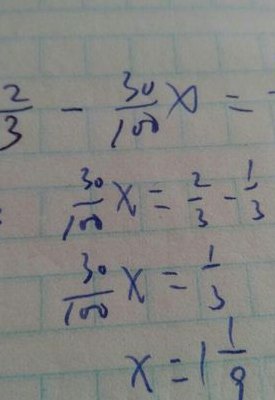 2/3 - 30/100 x =
30/100 x = 2/3 - 1/3
30/100 x = 1/3
x = 1 1/9